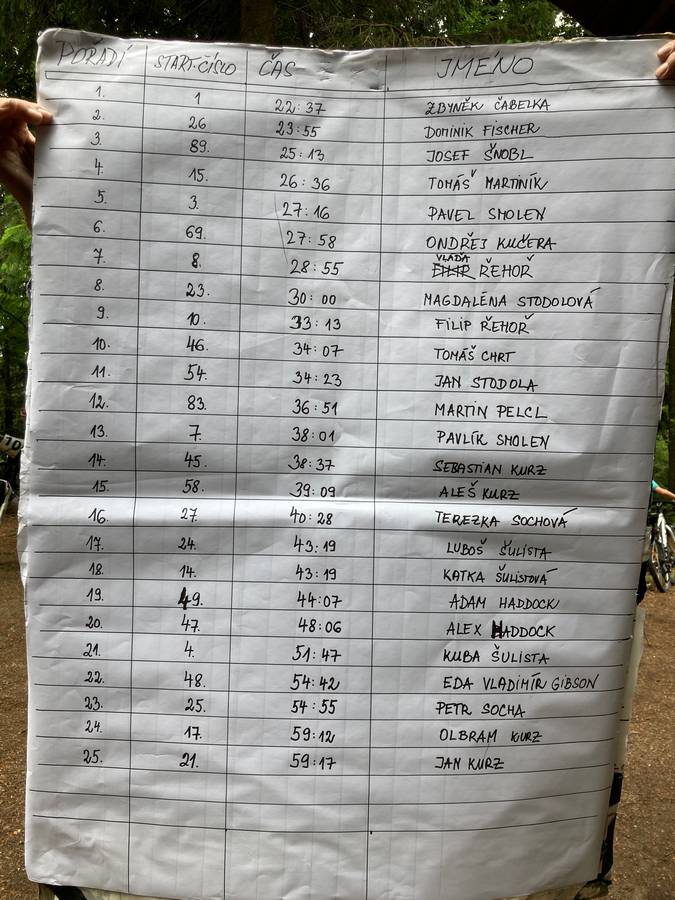 POŘADÍ START. ČÍSLO ČAS JMÉNO
1. 1 22:37 ZBYNĚK ČABELKA
2. 26 23:55 DOMINIK FISCHER
3. 89. 25:13 JOSEF ŠNOBL
4. 15. 26:36 TOMÁŠ MARTINÍK
5. 3. 27:16 PAVEL SMOLEN
6. 69. 27:58 ONDŘEJ KUČERA
7. 8. 28:55 VLAĎA ŘEHOŘ
8. 23. 30:00 MAGDALÉNA STODOLOVÁ
9. 10. 33:13 FILIP ŘEHOŘ
10. 46. 34:07 TOMÁŠ CHRT
11. 54. 34:23 JAN STODOLA
12. 83. 36:51 MARTIN PELCL
13. 7. 38:01 PAVLÍK SMOLEN
14. 45. 38:37 SEBASTIAN KURZ
15. 58. 39:09 ALEŠ KURZ
16. 27. 40:28 TEREZKA SOCHOVÁ
17. 24. 43:19 LUBOŠ ŠULISTA
18. 14. 43:19 KATKA ŠULISTOVÁ
19. 49. 44:07 ADAM HADDOCK
20. 47. 48:06 ALEX HADDOCK
21. 4. 51:47 KUBA ŠULISTA
22. 48. 54:42 EDA VLADIMÍR GIBSON
23. 25. 54:55 PETR SOCHA
24. 17. 59:12 OLBRAM KURZ
25. 21. 59:17 JAN KURZ
10